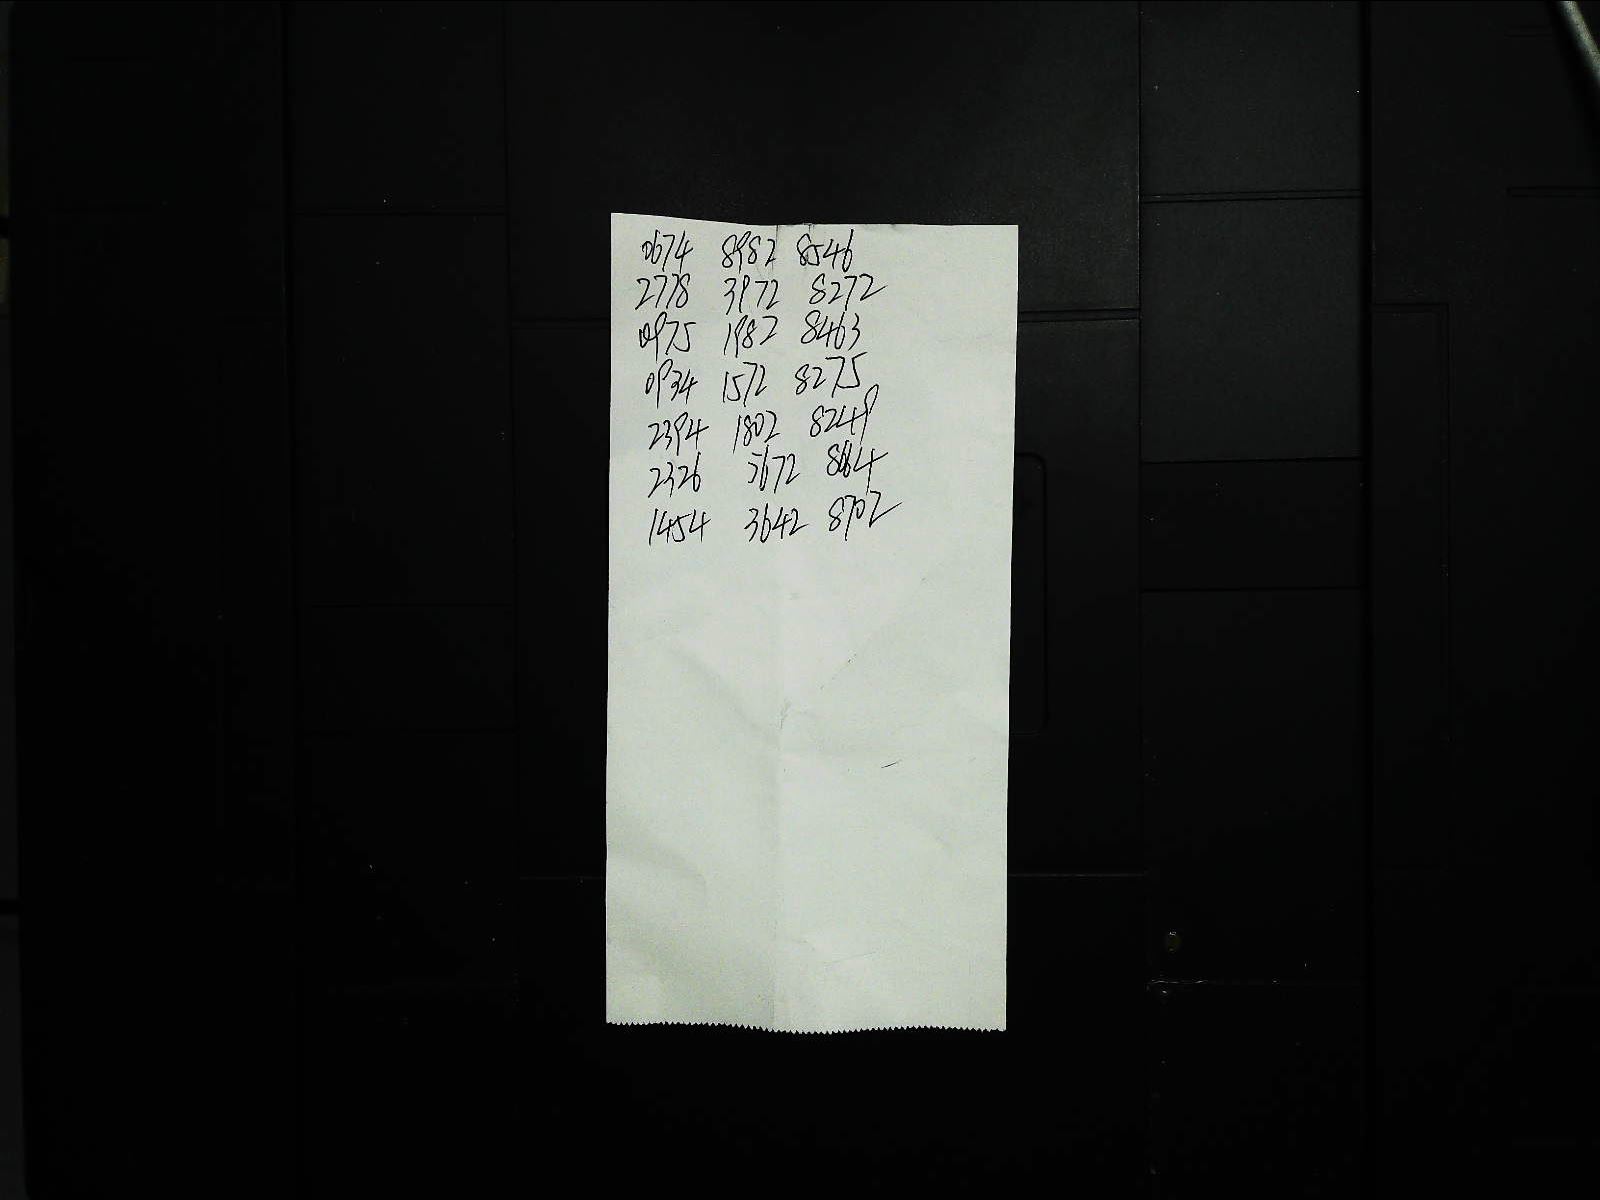 0674 8982 8546
2778 3972 8272
0975 1982 8463
0934 1572 8275
2394 1802 8249
2326 3672 8664
1454 3642 8702